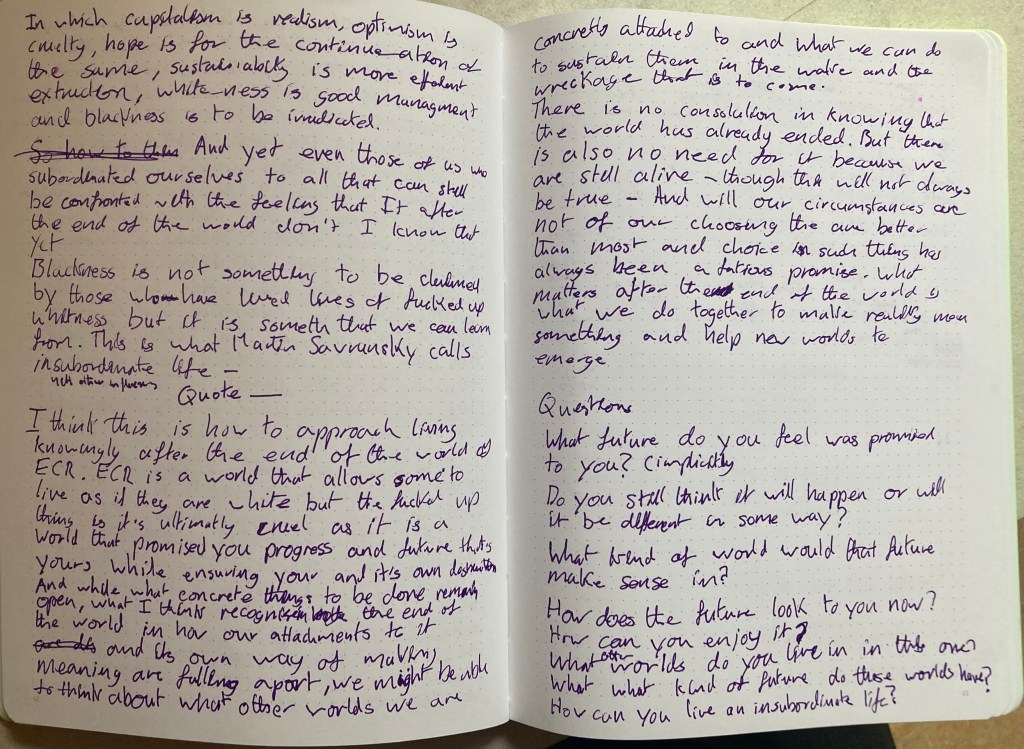 In which capitalism is realism, optimism is
cruelty, hope is for the continue-ation of
the same, sustainability is more efficient
extraction, white-ness is good managment
and blackness is to be irradicated.
So how to then And yet even those of us who
subordinated ourselves to all that can still
be confronted with the feeling that It after
the end of the world don't I know that
yet
Blackness is not something to be claimed
by those who have lived lives of fucked up
whitness but it is someth that we can learn
from. This is what Martin Savransky calls
insubordinate life —
with other influences
Quote —
I think this is how to approach living
knowingly after the end of the world of
ECR. ECR is a world that allows some to
live as if they are white but the fucked up
thing is it's ultimatly cruel as it is a
world that promised you progress and future that's
yours while ensuring your and it's own destruction
And while what concrete things to be done remain
open, what I think recognising the end of
the world in how our attachments to it
and its own way of making
meaning are falling apart, we might be able
to think about what other worlds we are
concretly attached to and what we can do
to sustain them in the wake and the
wreckage that is to come.
There is no consolation in knowing that
the world has already ended. But there
is also no need for it because we
are still alive - though this will not always
be true - And will our circumstances are
not of our choosing the are better
than most and choice in such things has
always been a promise. What
matters after the end of the world is
what we do together to make reality mean
something and help new worlds to
emerge
Questions
What future do you feel was promised
to you? (implicitly
Do you still think it will happen or will
it be different in some way?
What kind of world would that future
make sense in?
How does the future look to you now?
How can you enjoy it?
What other worlds do you live in in this one?
What what kind of future do these worlds have?
How can you live an insubordinate life?